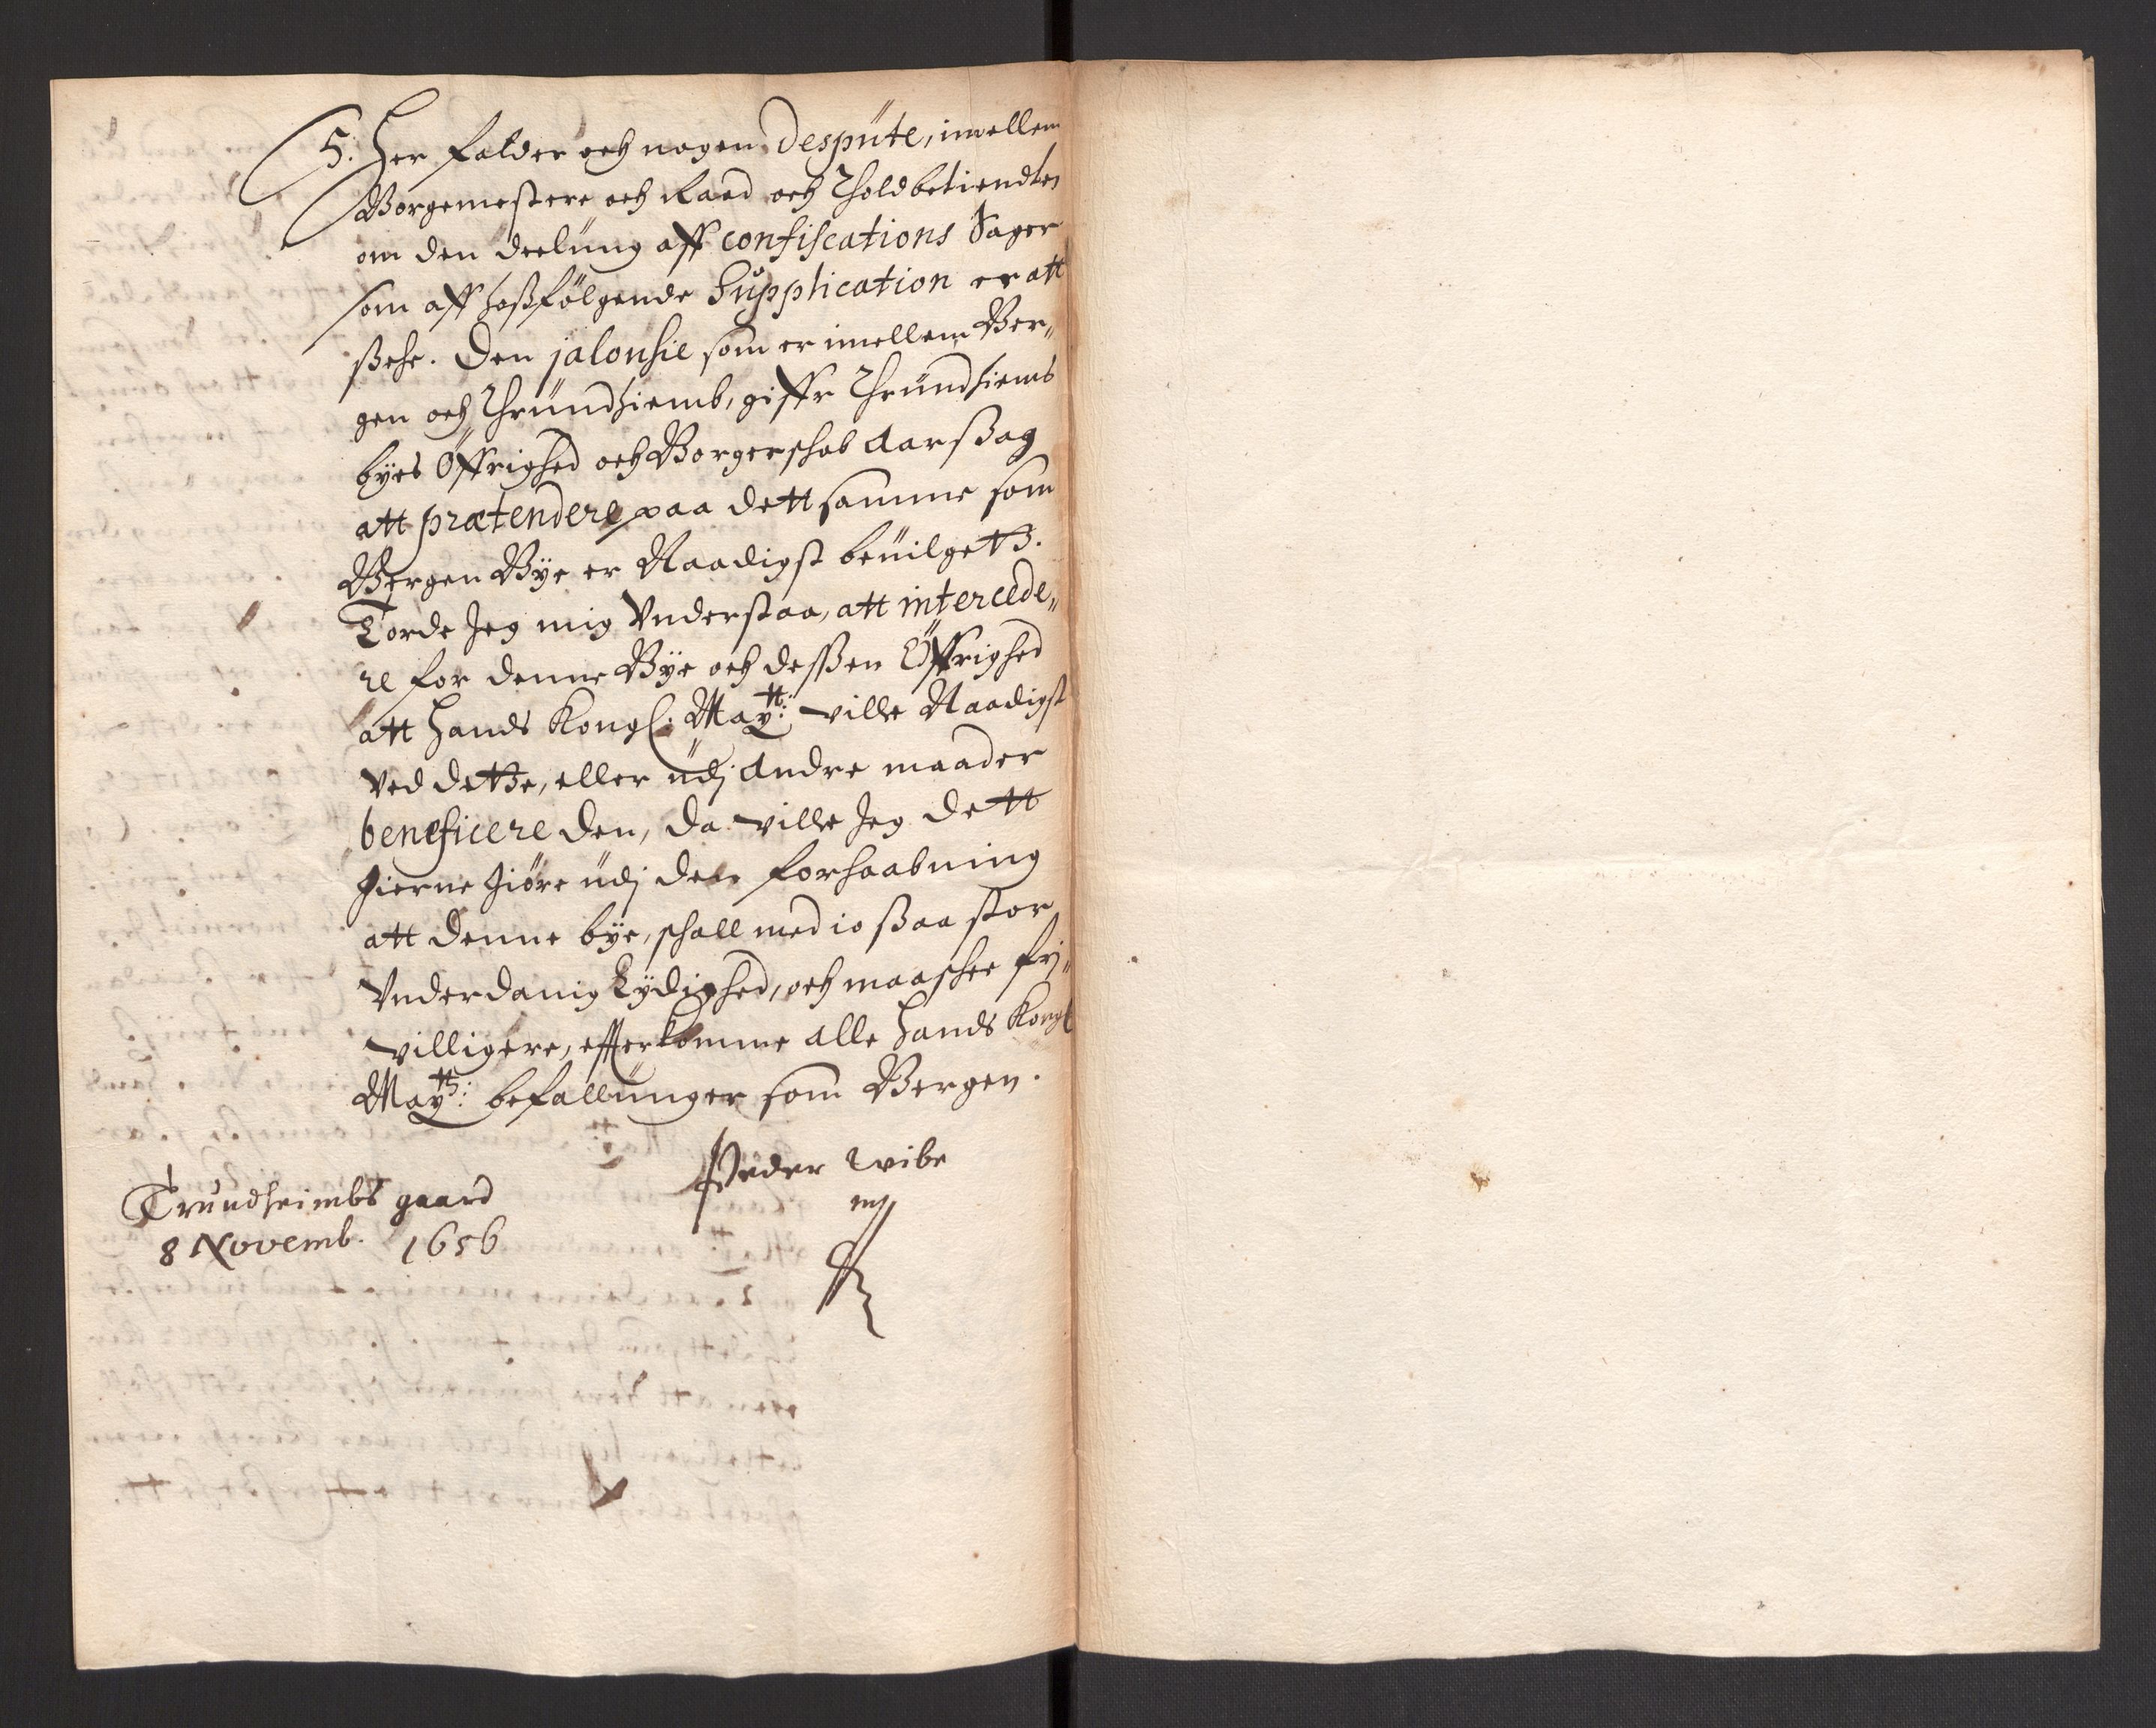 5. Her falder och nogen Despüte, imellem
Borgemestere och Raad och Tholdbetiendten
om den deelüng aff confiscations Sager
som aff hoßfölgende Süpplication er att
ßehe. Den jalousie som er imellem Ber„
gen och Thründhiemb, giffr Thründhiembs
byes Öffrighed och Borgerschab Aarßag
att prætendere paa dett samme som
Bergen Bÿe er Naadigst beüilgett.
Torde Jeg mig Vnderstaa, att intercede„
re for denne Bÿe och deßen Öffrighed
att Hands Kongl: Maytt: ville Naadigst
Ved dette, eller üdj Andre maader
beneficere den, da ville Jeg dett
gierne giöre üdj den forhaabning
att denne bÿe, schall med io ßaa stor
Vnderdanig Lÿdighed, och maaschee frj„
villigere, effterkomme alle Hands Kongl
Maytt: befallünger som Bergen.
Peder Wibe
mp
Trundheimbs gaard
8 Novemb. 1656